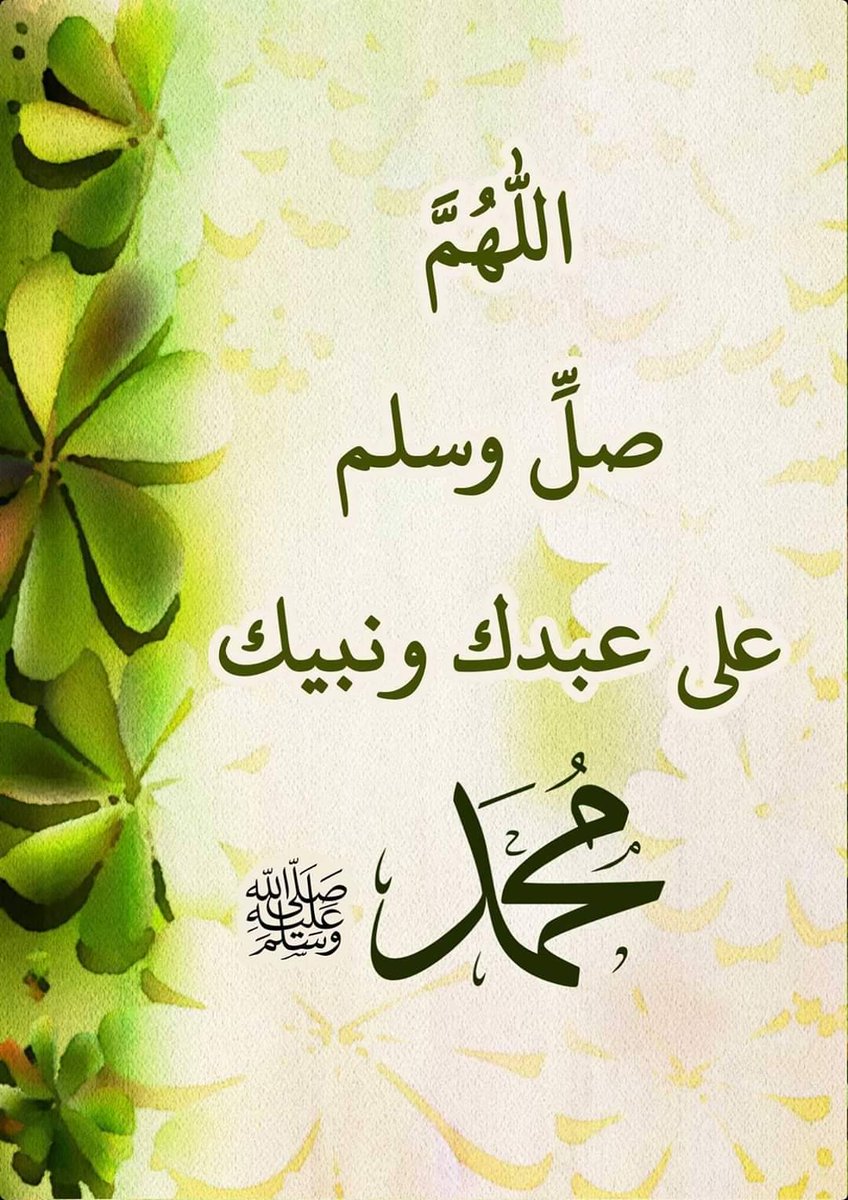 اللّٰهُمَّ
صلِّ وسلم
على عبدك ونبيك
مُحمد
صَلَّى اللّٰه
عَلَيْهِ
وَسَلَّمَ